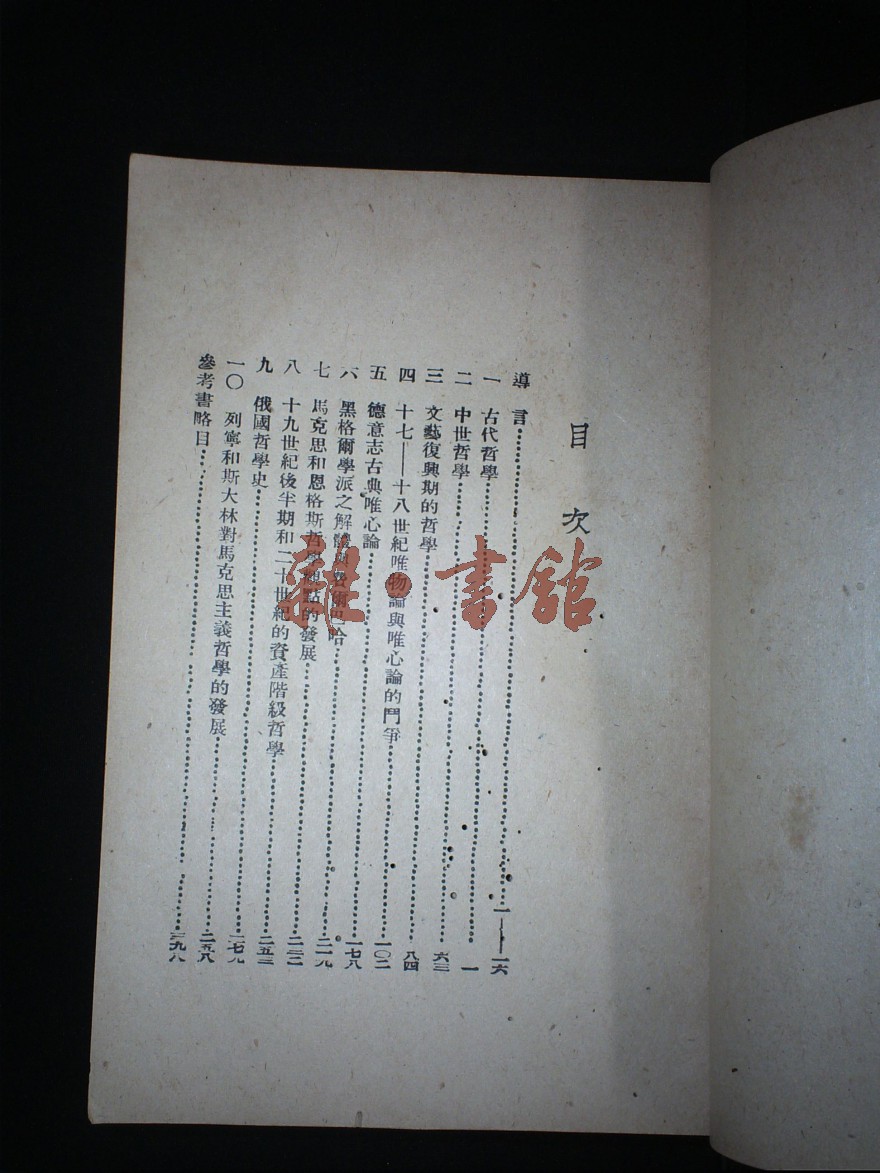 目次
導言……一——一六
一 古代哲學……一
二 中世哲學……六三
三 文藝復興期的哲學……八四
四 十七——十八世紀唯物論與唯心論的鬥爭……一〇二
五 德意志古典唯心論……一七八
六 黑格爾學派之解體與費爾巴哈……二一九
七 馬克思和恩格斯哲學觀點的發展……二三二
八 十九世紀後半期和二十世紀的資產階級哲學……二五三
九 俄國哲學史……
一〇 列寧和斯大林對馬克思主義哲學的發展……
參考書略目……
雜·書館